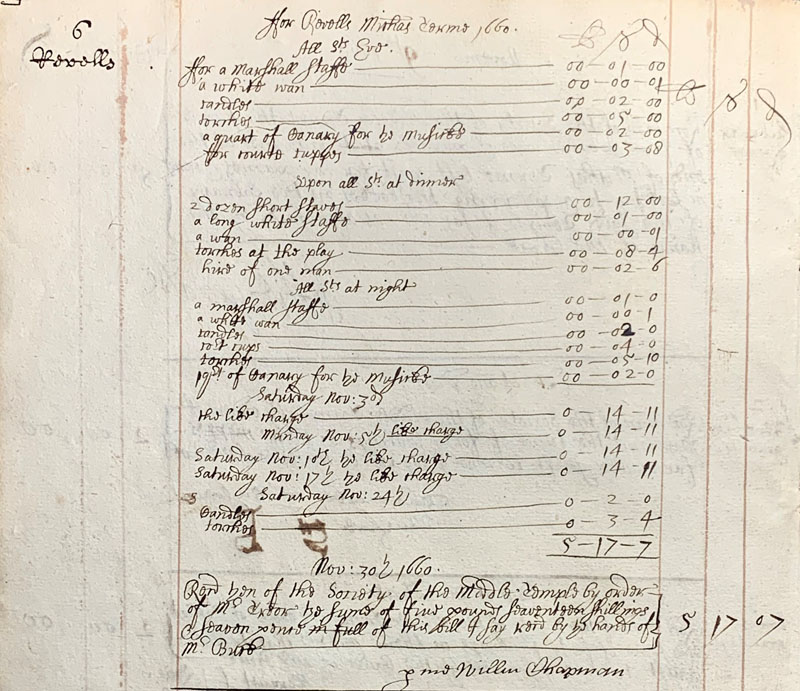 6
Revells
ffor Revells Michas Terme 1660.
All Sts Eve.
li s d
ffor a Marshall Staffe 00 - 01 - 00
a white wan 00 - 00 - 01
candles 00 - 02 - 00
torches 00 - 05 - 00
a quart of Canary for ye Musicke 00 - 02 - 00
ffor courte cuppes 00 - 03 - 08
li s d
Upon all Sts at dinner
2 dozen short staves 00 - 12 - 00
a long white Staffe 00 - 01 - 00
a wan 00 - 00 - 01
torches at the play 00 - 08 - 4
hire of one man 00 - 02 - 6
All Sts at night
a marshall staffe 00 - 01 - 0
a white wan 00 - 00 - 1
candles 00 - 02 - 0
cort cups 00 - 04 - 0
torches 00 - 05 - 10
1 qrt of Canary for ye Musicke 00 - 02 - 0
Saturday Nov: 3d
the like charge 0 - 14 - 11
Munday Nov: 5th like charge 0 - 14 - 11
Saturday Nov: 10th ye like charge 0 - 14 - 11
Saturday Nov: 17th ye like charge 0 - 14 - 11
Saturday Nov: 24th
Candles 0 - 2 - 0
torches 0 - 3 - 4
5 - 17 - 7
Nov: 30th 1660.
Recd then of the Society of the Middle Temple by order
of Mr Trēor the sume of five pounds seaventeen shillings
& seaven pence in full of this bill I say recd by the hands of
Mr Burb
5 17 07
p me Willm Chapman